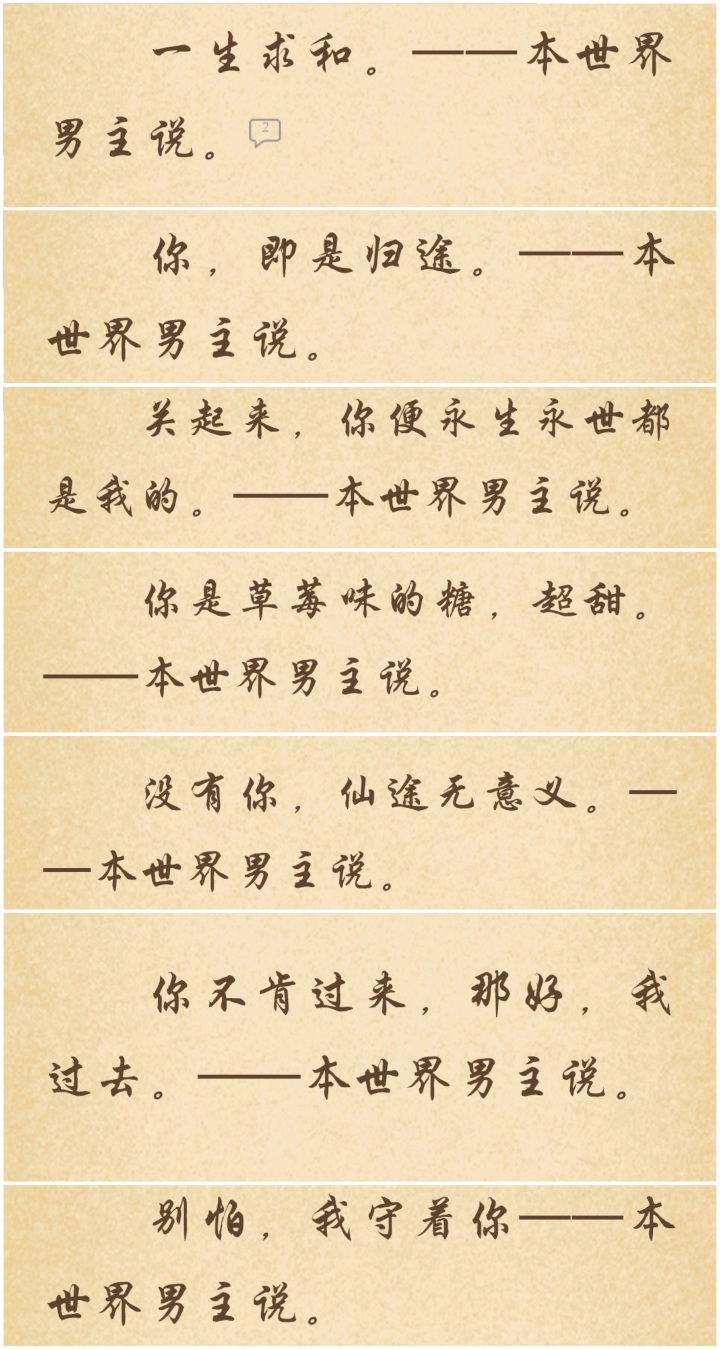 一生求和。——本世界
男主说。2
你，即是归途。——本
世界男主说。
关起来，你便永生永世都
是我的。——本世界男主说。
你是草莓味的糖，超甜。
——本世界男主说。
没有你，仙途无意义。—
—本世界男主说。
你不肯过来，那好，我
过去。——本世界男主说。
别怕，我守着你——本
世界男主说。